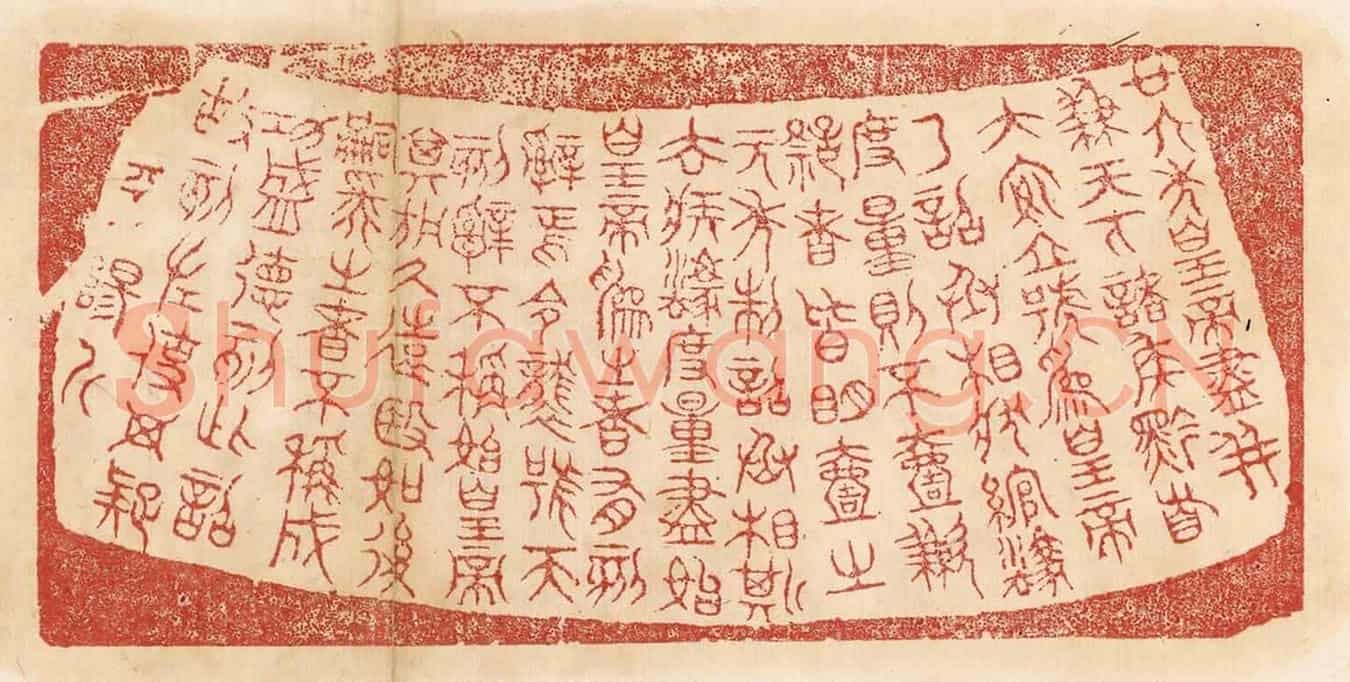 廿六年皇帝盡并
兼天下諸侯黔首
大安立號為皇帝
乃詔丞相狀綰灋
度量則不壹歉
疑者皆明壹之
元年制詔丞相斯
去疾灋度量盡始
皇帝為之者有刻
辭焉今襲號而
刻辭不稱始皇帝
其於久遠殹如後
嗣為之者不稱成
功盛德刻此詔
故刻左使毋疑
Shufawang.CN